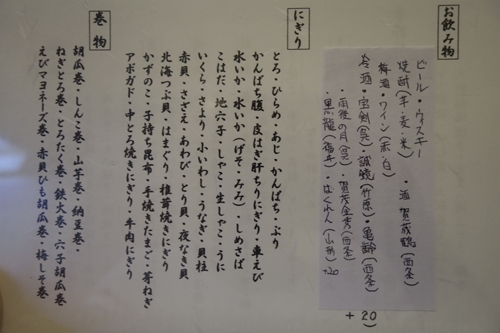 お飲み物
ビール・ウィスキー
焼酎(芋・麦・米)・酒 賀茂鶴(西条)
梅酒・ワイン(赤・白)
冷酒・宝剣(呉)・誠鏡(竹原)・亀齢(西条)
・雨後の月(呉)・賀茂金秀(西条)
・黒龍(福井)・はくれん(山形) +20
+20)
にぎり
とろ・ひらめ・あじ・かんぱち・ぶり
かんぱち腹・皮はぎ肝ちりにぎり・車えび
水いか・水いか(げそ・みみ)・しめさば
こはだ・地穴子・しゃこ・生しゃこ・うに
いくら・さより・小いわし・うなぎ・貝柱
赤貝・さざえ・あわび・とり貝・夜なき貝
北海つぶ貝・はまぐり・椎茸焼きにぎり
かずのこ・子持ち昆布・手焼きたまご・芽ねぎ
アボガド・中とろ焼きにぎり・牛肉にぎり
巻物
胡瓜巻・しんこ巻・山芋巻・納豆巻・
ねぎとろ巻・とろたく巻・鉄火巻・穴子胡瓜巻
えびマヨネーズ巻・赤貝ひも胡瓜巻・梅しそ巻